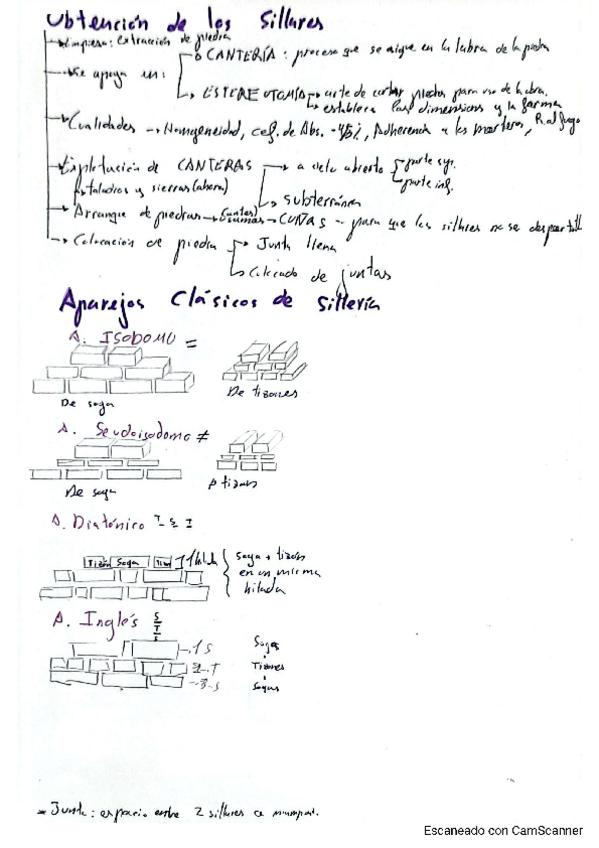 Obtención de los Sillares
Empieza: Extracción de piedra
CANTERÍA: proceso que se sigue en la labra de la piedra
Se apoya en:
ESTEREOTOMÍA → arte de cortar piedras para uso de la obra.
→ establece las dimensiones y la forma
Cualidades → Homogeneidad, de Abs. Adherencia a los morteros, R. al fuego
Explotación de CANTERAS → a cielo abierto parte sup.
taladros y sierras (ahora) parte inf.
subterránea
Arranque de piedras → CUÑAS - para que los sillares no se
Colocación de piedra → Junta llena
→ Calcado de juntas
Aparejos Clásicos de Sillería
A. ISODOMO =
De soga
De tizones
A. Seudoisodomo ≠
De soga
tizon
A. Diatónico
Tizón Soga 1 hilada
soga + tizon
en un misma
hilada
A. Inglés S T S
1 S
2 - T
3 - S
Sogas
Tizones
Sogas
* Junta: espacio entre 2 sillares
Escaneado con CamScanner